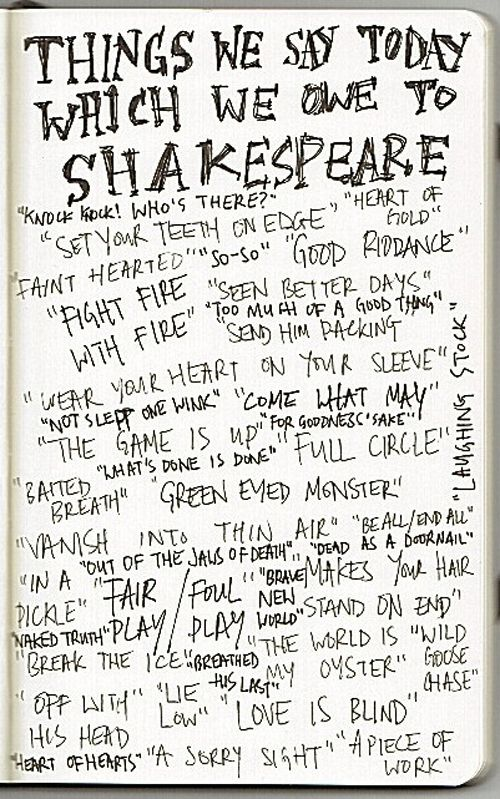 THINGS WE SAY TODAY
WHICH WE OWE TO
SHAKESPEARE
"KNOCK KNOCK! WHO'S THERE?" "HEART OF GOLD"
"SET YOUR TEETH ON EDGE"
FAINT HEARTED" "SO-SO" "GOOD RIDDANCE"
"FIGHT FIRE WITH FIRE" "SEEN BETTER DAYS"
"TOO MUCH OF A GOOD THING"
"SEND HIM PACKING
"WEAR YOUR HEART ON YOUR SLEEVE"
"LAUGHING STOCK"
"NOT SLEPP ONE WINK" "COME WHAT MAY"
"THE GAME IS UP" "FOR GOODNESS' SAKE"
"WHAT'S DONE IS DONE" "FULL CIRCLE"
"BAITED BREATH" "GREEN EYED MONSTER"
"VANISH INTO THIN AIR" "BE ALL/END ALL"
"OUT OF THE JAWS OF DEATH" "DEAD AS A DOORNAIL"
"IN A PICKLE" "FAIR PLAY/FOUL PLAY "BRAVE NEW WORLD" MAKES YOUR HAIR STAND ON END"
"NAKED TRUTH"
"BREAK THE ICE" "BREATHED HIS LAST" "THE WORLD IS MY OYSTER" "WILD GOOSE CHASE"
"OFF WITH HIS HEAD "LIE LOW" "LOVE IS BLIND"
"HEART OF HEARTS" "A SORRY SIGHT" "A PIECE OF WORK"